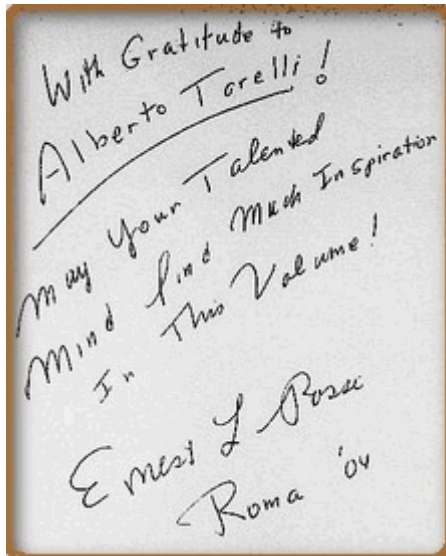 With Gratitude to
Alberto Torelli!
May Your Talented
Mind find Much Inspiration
In This Volume!
Ernest L Rossi
Roma '04